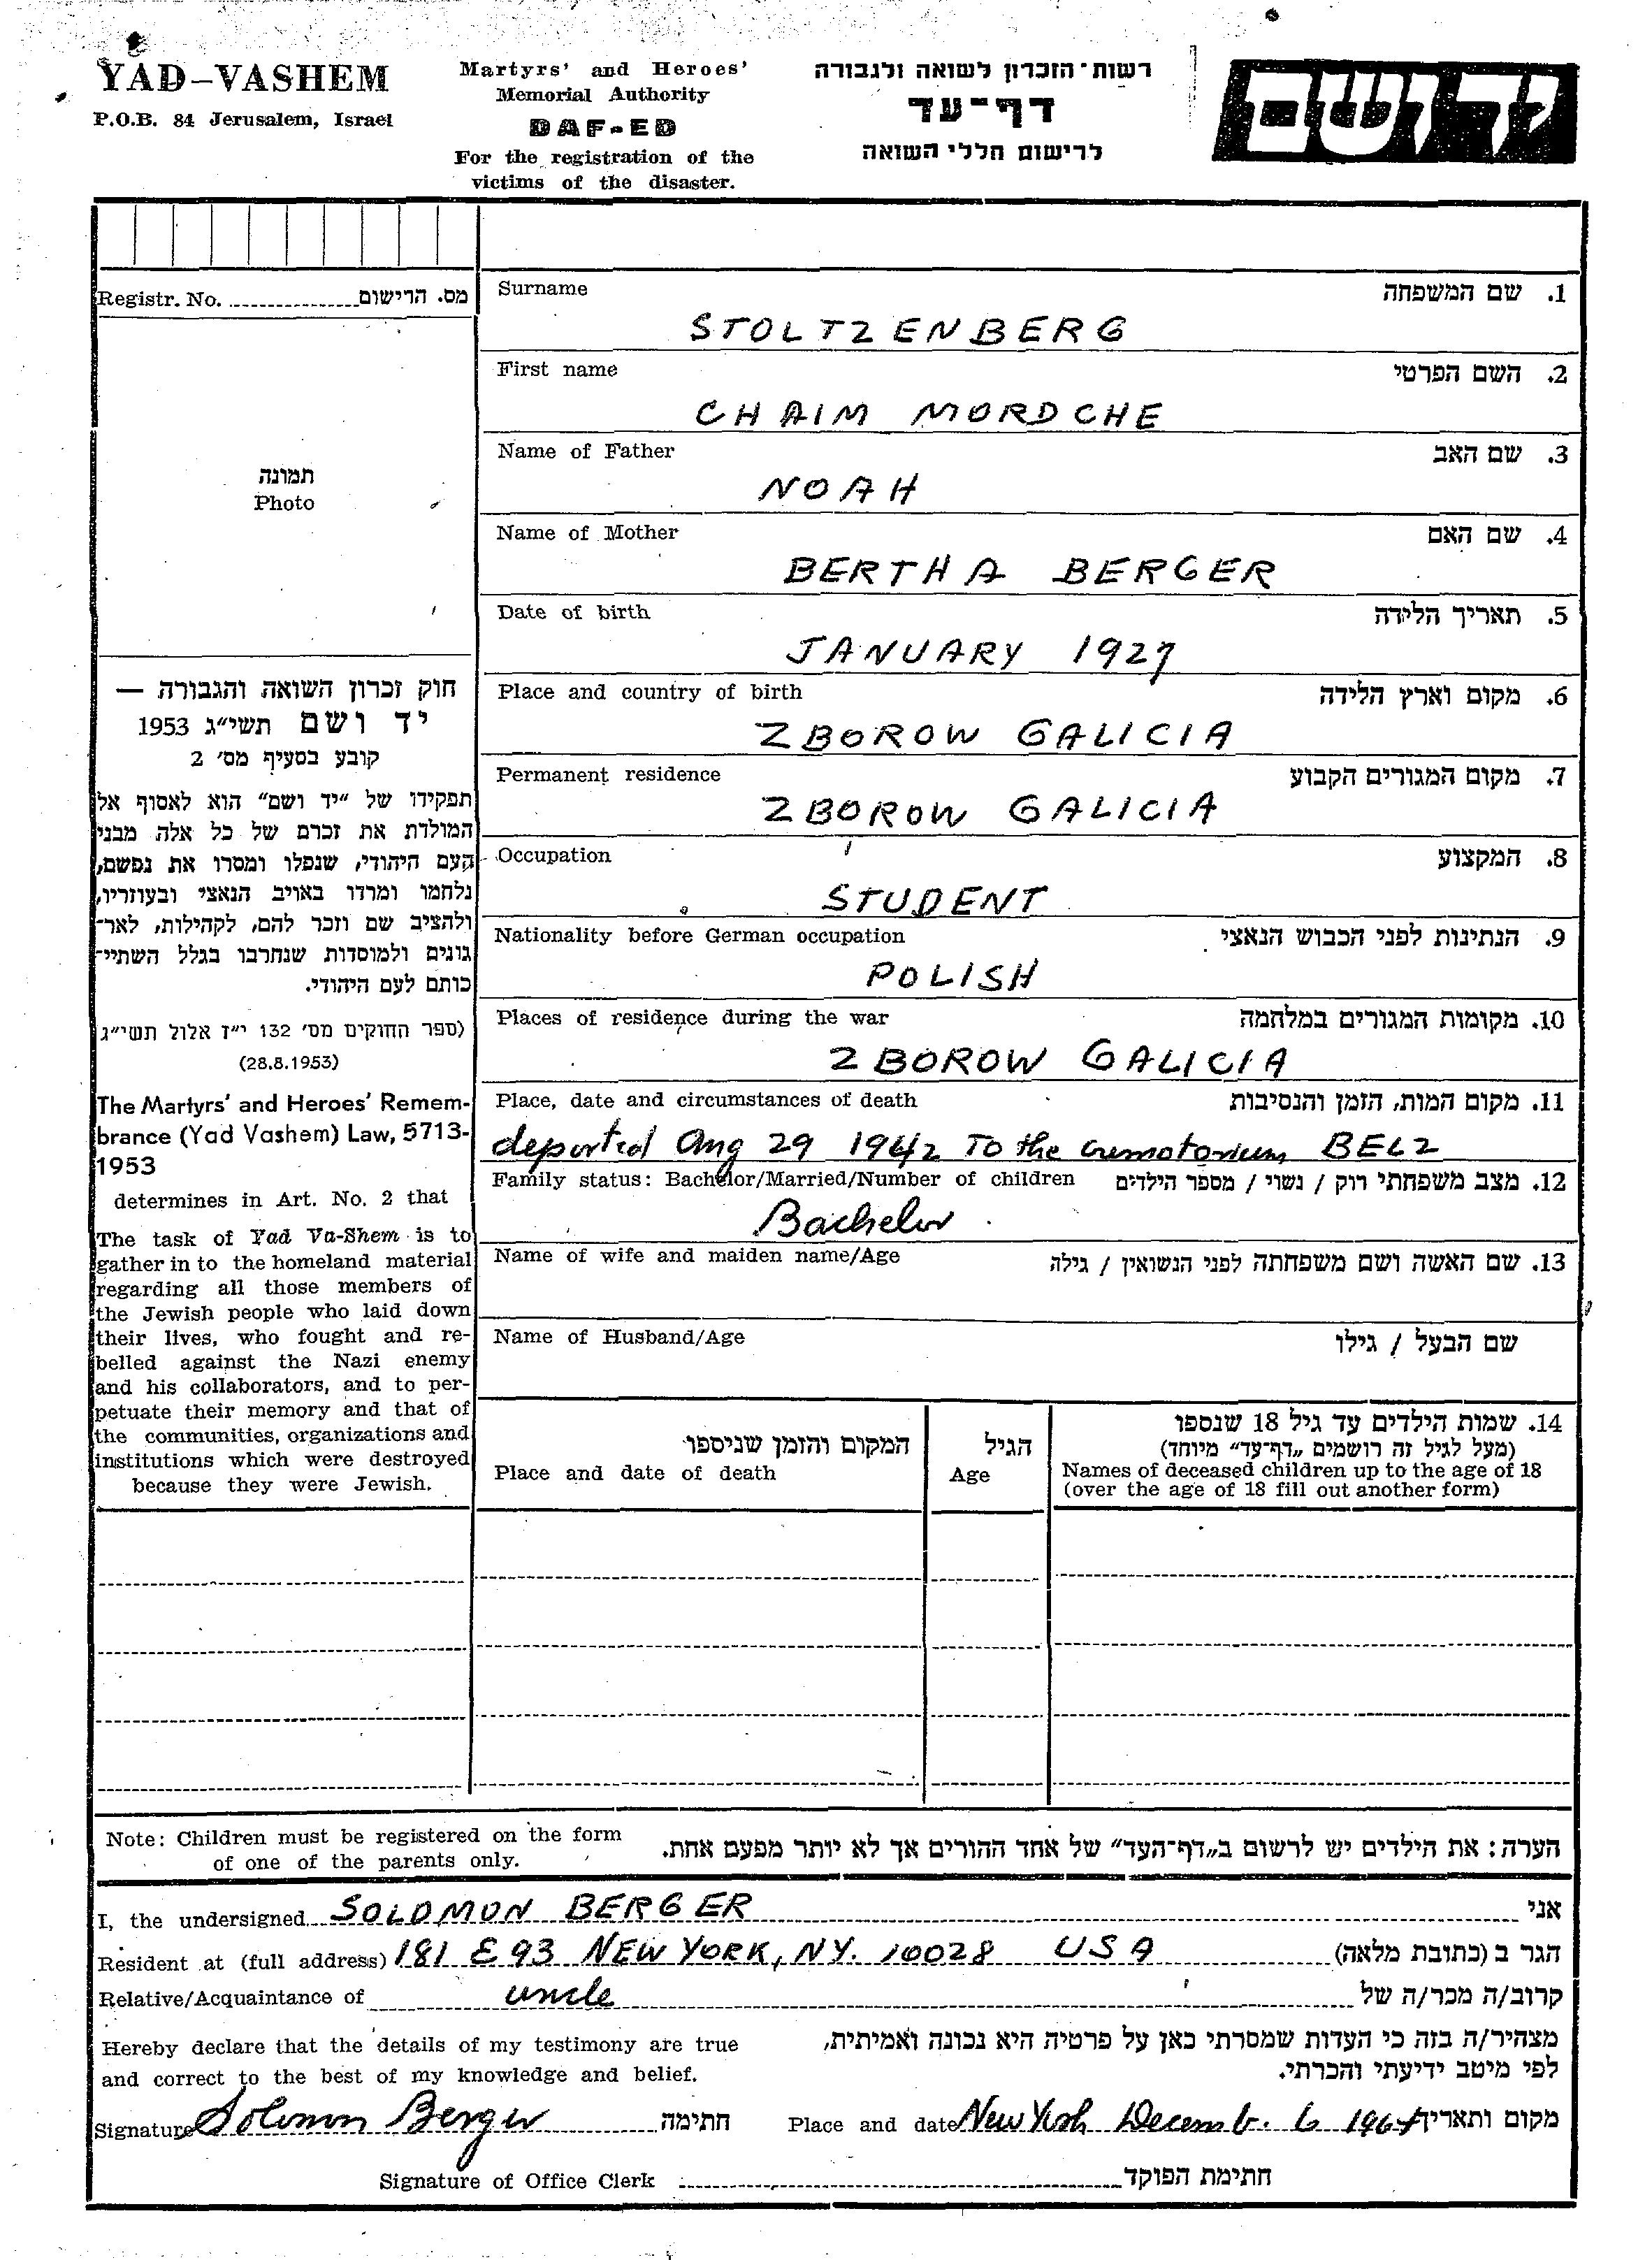 YAD-VASHEM
P.O.B. 84 Jerusalem, Israel
Martyrs' and Heroes'
Memorial Authority
DAF-ED
For the registration of the
victims of the disaster.
רשות־הזכרון לשואה ולגבורה
דף־עד
לרישום חללי השואה
יד ושם
Registr. No. מס. הרישום
תמונה
Photo
חוק זכרון השואה והגבורה —
יד ושם תשי״ג 1953
קובע בסעיף מס׳ 2
תפקידו של ״יד ושם״ הוא לאסוף אל
המולדת את זכרם של כל אלה מבני
העם היהודי, שנפלו ומסרו את נפשם,
נלחמו ומרדו באויב הנאצי ובעוזריו,
ולהציב שם וזכר להם, לקהילות, לאר־
גונים ולמוסדות שנחרבו בגלל השתיי־
כותם לעם היהודי.
(ספר החוקים מס׳ 132 י״ז אלול תשי״ג
(28.8.1953)
The Martyrs' and Heroes' Remem-
brance (Yad Vashem) Law, 5713-
1953
determines in Art. No. 2 that
The task of Yad Va-Shem is to
gather in to the homeland material
regarding all those members of
the Jewish people who laid down
their lives, who fought and re-
belled against the Nazi enemy
and his collaborators, and to per-
petuate their memory and that of
the communities, organizations and
institutions which were destroyed
because they were Jewish.
Surname 1. שם המשפחה
STOLTZENBERG
First name 2. השם הפרטי
CHAIM MORDCHE
Name of Father 3. שם האב
NOAH
Name of Mother 4. שם האם
BERTHA BERGER
Date of birth 5. תאריך הלידה
JANUARY 1927
Place and country of birth 6. מקום וארץ הלידה
ZBOROW GALICIA
Permanent residence 7. מקום המגורים הקבוע
ZBOROW GALICIA
Occupation 8. המקצוע
STUDENT
Nationality before German occupation 9. הנתינות לפני הכבוש הנאצי
POLISH
Places of residence during the war 10. מקומות המגורים במלחמה
ZBOROW GALICIA
Place, date and circumstances of death 11. מקום המות, הזמן והנסיבות
deported Aug 29 1942 To the crematorium BELZ
Family status: Bachelor/Married/Number of children 12. מצב משפחתי רוק / נשוי / מספר הילדים
Bachelor
Name of wife and maiden name/Age 13. שם האשה ושם משפחתה לפני הנשואין / גילה
Name of Husband/Age שם הבעל / גילו
המקום והזמן שניספו
Place and date of death
הגיל
Age
14. שמות הילדים עד גיל 18 שנספו
(מעל לגיל זה רושמים „דף־עד״ מיוחד)
Names of deceased children up to the age of 18
(over the age of 18 fill out another form)
Note: Children must be registered on the form
of one of the parents only.
הערה: את הילדים יש לרשום ב„דף־העד״ של אחד ההורים אך לא יותר מפעם אחת.
I, the undersigned SOLOMON BERGER אני
Resident at (full address) 181 E 93 NEW YORK, NY. 10028 USA הגר ב (כתובת מלאה)
Relative/Acquaintance of uncle קרוב/ה מכר/ה של
Hereby declare that the details of my testimony are true
and correct to the best of my knowledge and belief.
מצהיר/ה בזה כי העדות שמסרתי כאן על פרטיה היא נכונה ואמיתית,
לפי מיטב ידיעתי והכרתי.
Signature Solomon Berger חתימה Place and date New York Decemb. 6 מקום ותאריך
Signature of Office Clerk חתימת הפוקד